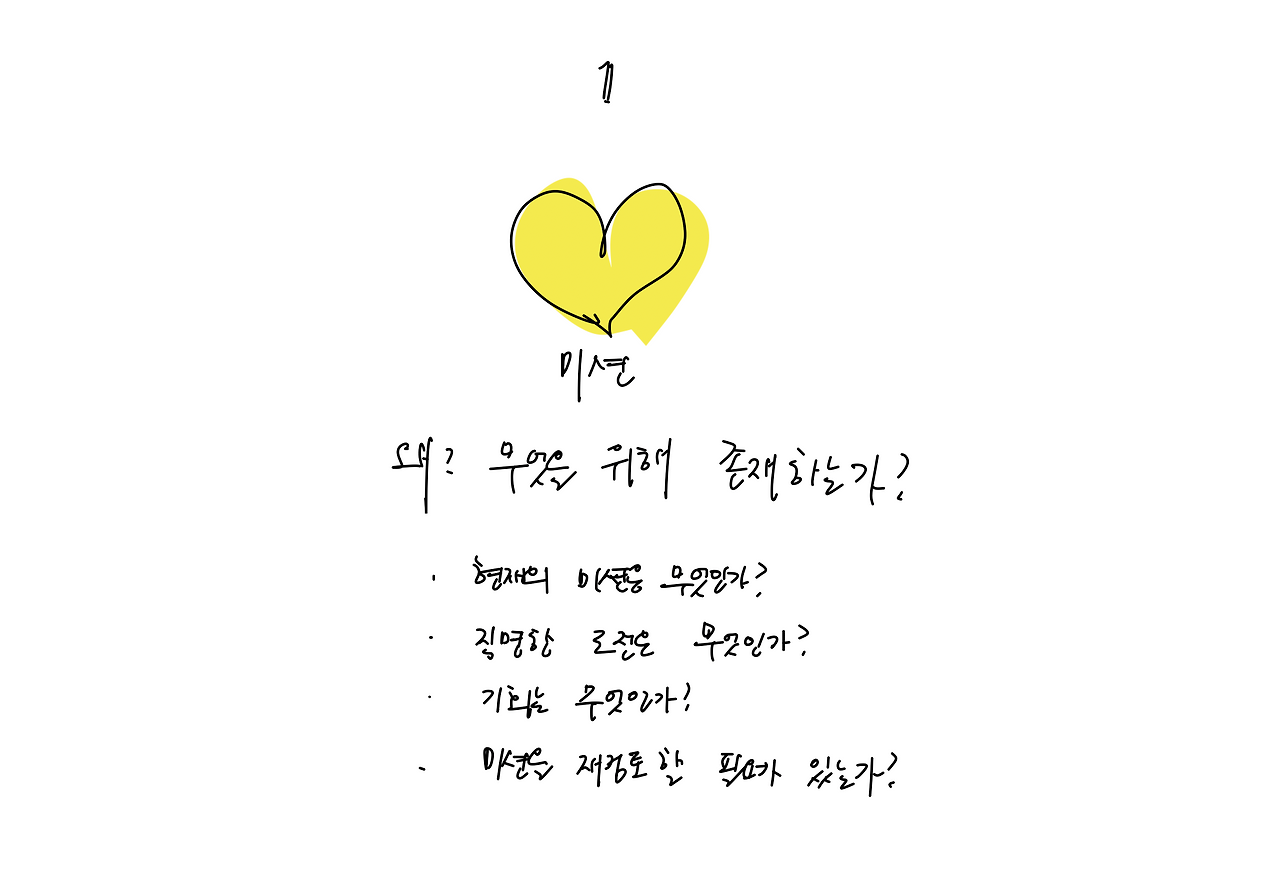 1
미션
왜? 무엇을 위해 존재하는가?
· 현재의 미션은 무엇인가?
· 직면한 도전은 무엇인가?
· 기회는 무엇인가?
· 미션을 재검토할 필요가 있는가?